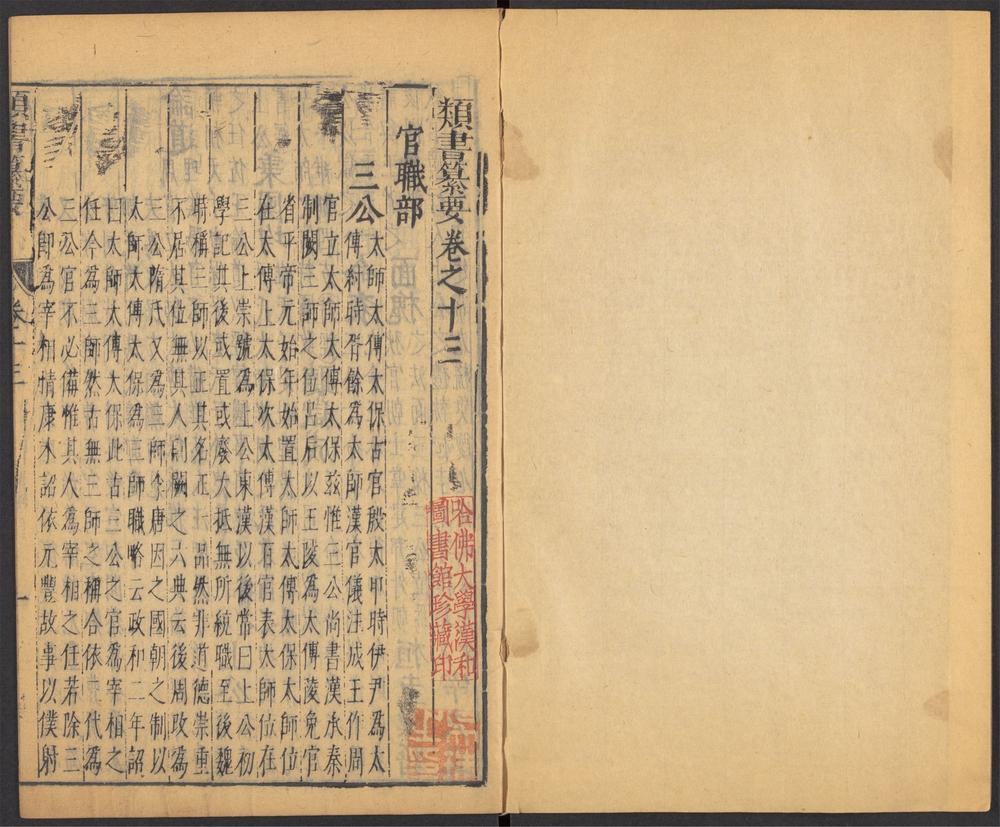 類書纂要卷之十三
官職部
三公
太師太傅太保古官殷太甲時伊尹為太
傅紂時胥餘為太師漢官儀注成王作周
官立太師太傅太保茲惟三公尚書漢承秦
制闕三師之位呂后以王陵為太傅陵免官
省平帝元始年始置太師太傅太保太師位
在太傅上太保次太傅漢百官表太師位在
三公上崇號為上公東漢以後常曰上公初
學記其後或置或廢大抵無所統職至後魏
時稱三師以正其名正一品然非道德崇重
不居其位無其人則闕之六典云後周改為
三公隋氏又為三師李唐因之國朝之制以
太師太傅太保為三師職略云政和二年詔
曰太師太傅太保此古三公之官為宰相之
任今為三師然古無三師之稱合依三代為
三公官不必備惟其人為宰相之任若除三
公即為宰相靖康末詔依元豐故事以僕射
類書纂要
卷十三
一
哈佛大學漢和
圖書館珍藏印